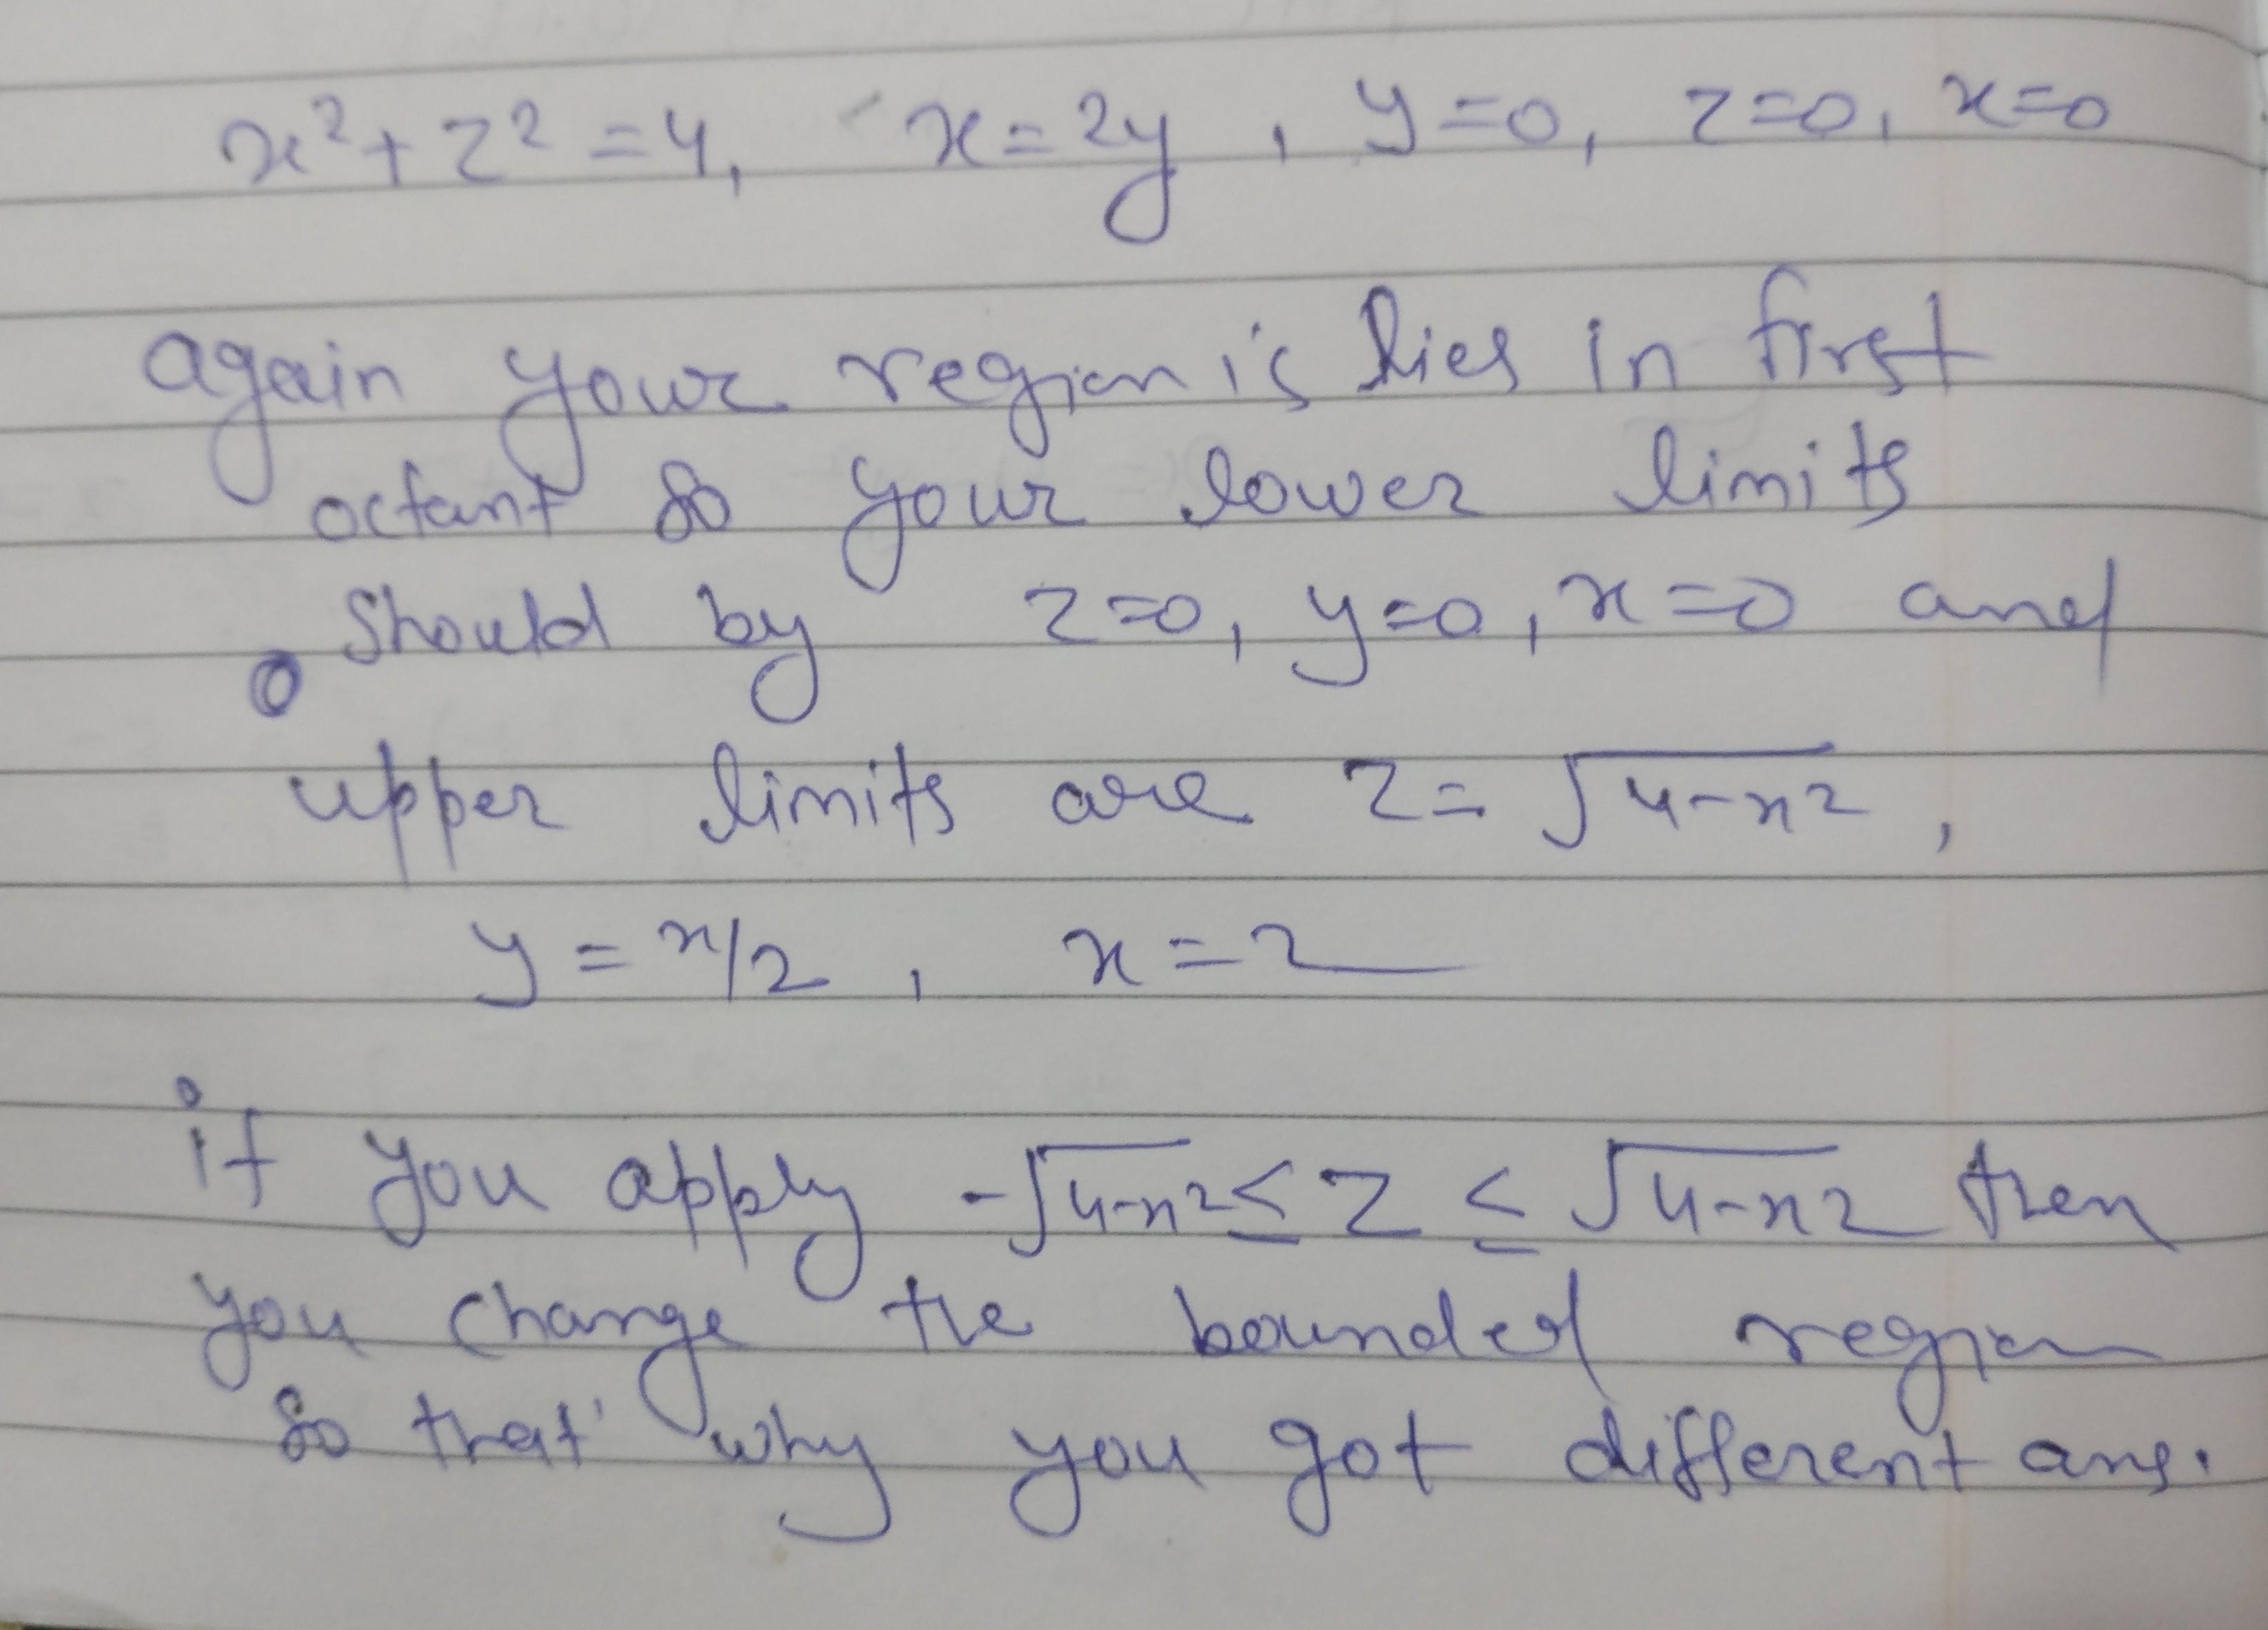 x² + z² = 4, x = 2y, y = 0, z = 0, x = 0
again your region is lies in first
octant so your lower limits
should by z = 0, y = 0, x = 0 and
upper limits are z = √4-x²,
y = x/2, x = 2
if you apply -√4-x² ≤ z ≤ √4-x² then
you change the bounded region
so that' why you got different ans.